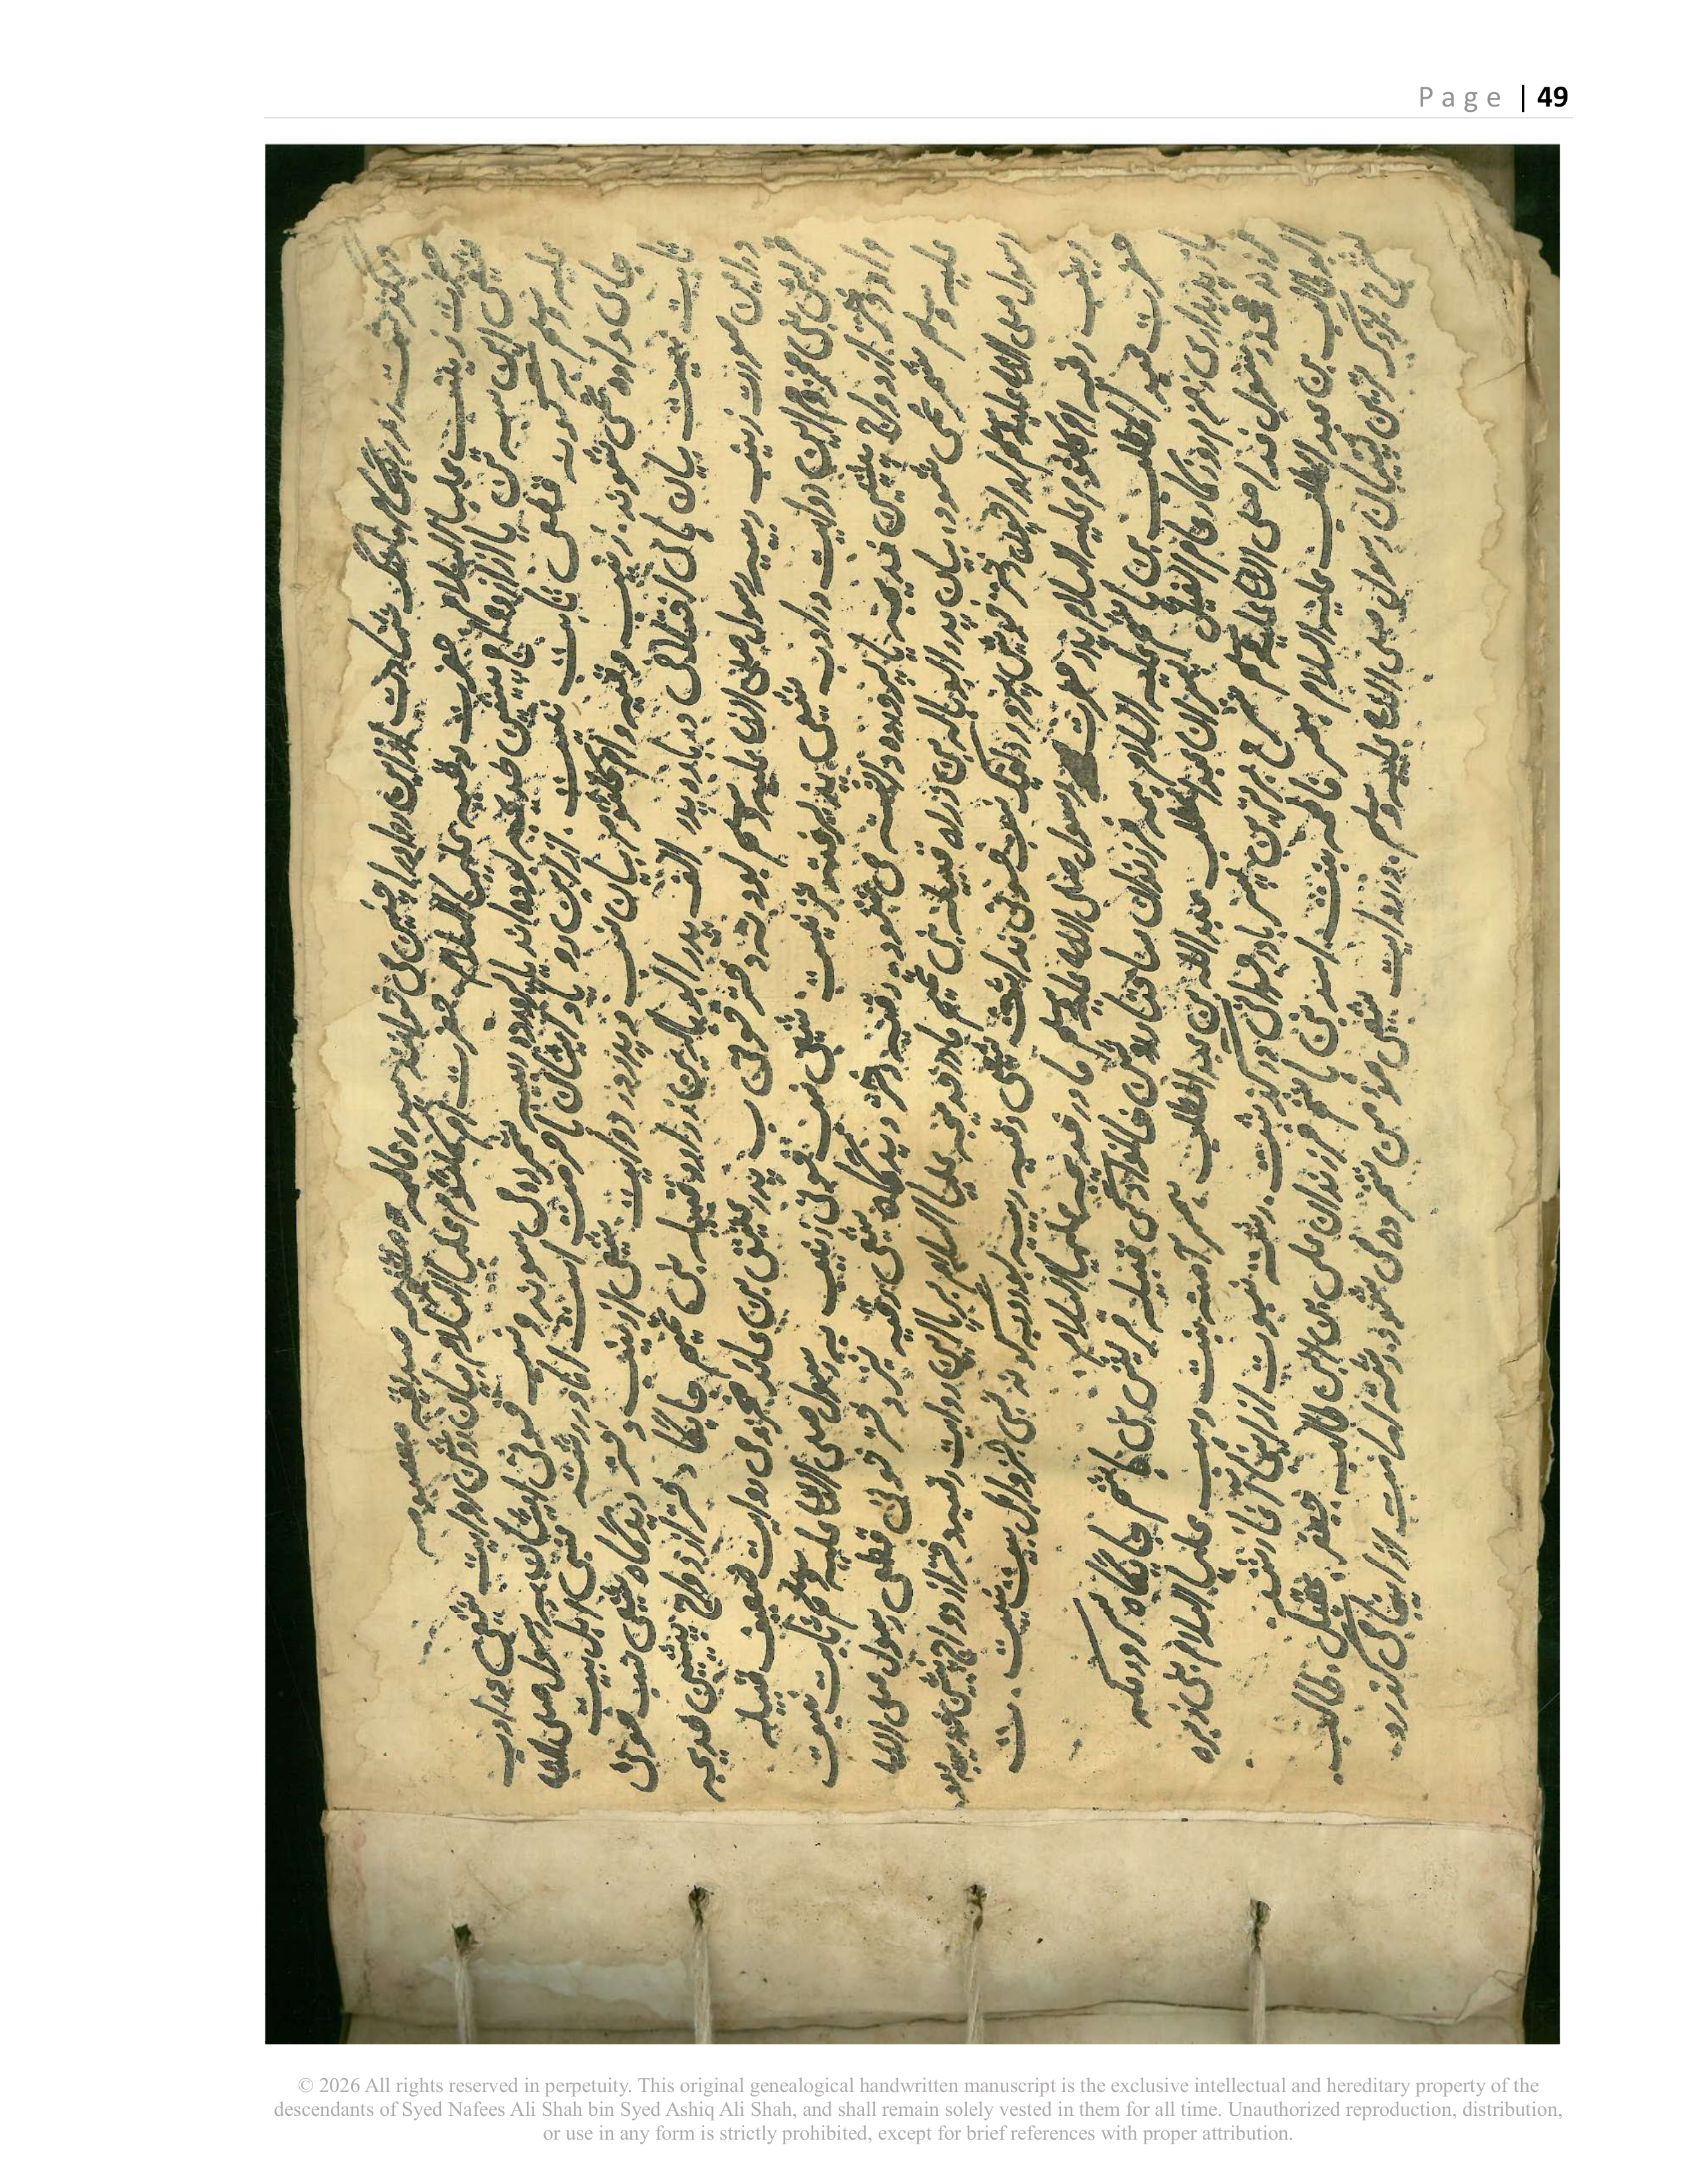 درگذشت ہنگام بانگ شہادت از این رو او را چنین می خوانند سیدہ عالمہ و مظلومہ صدیقہ معصومہ
حضرت زینب علیہا السلام حضرت رقیہ علیہا السلام حضرت ام کلثوم علیہا السلام بیان روشن روایت شیعی در ادب
شیعی این سہ تن یا از ازدواج پیشین خدیجہ بودہ اند یا پروردہ ربیبہ شمردہ می شوند و نسب خونی ایشان بہ رسول صلی اللہ
علیہ وسلم بہ گونہ قطعی ثابت نیست. از این رو یاد ایشان با حرمت است اما در رشتہ نسبی اہل بیت
جای دادہ نمی شوند. زینب و رقیہ و ام کلثوم بیان نسب و پدر در روایت شیعی از زینب دختر دیدگاہ شیعی نسب خونی
ثابت نیست بیان اختلافی دربارہ پدر الف پدر ابوہالہ بن زرارہ قبیلہ بنی تمیم جایگاہ دختر ازدواج پیشین خدیجہ
در این صورت زینب ربیبہ رسول صلی اللہ علیہ وسلم بود نہ دختر خونی ب پدر عتیق بن عائذ مخزومی روایت ضعیف قبیلہ
قریش بنی مخزوم این روایت در ادب شیعی پذیرفتہ تر نیست شیعی نسب خونی زینب بہ رسول صلی اللہ علیہ وسلم ثابت نیست
و او دختر ازدواج پیشین خدیجہ یا پروردہ دانستہ می شود. رقیہ دختر دیدگاہ شیعی رقیہ نیز دختر خونی قطعی رسول صلی اللہ
علیہ وسلم شمردہ نمی شود. بیان پدر ابوہالہ بن زرارہ قبیلہ بنی تمیم مادر خدیجہ علیہا السلام بر پایہ این روایت رقیہ دختر ازدواج پیشین خدیجہ بود
رسول صلی اللہ علیہ وسلم او را چون دختر خویش پرورد لیک نسب خونی نداشت شیعی رقیہ ربیبہ بود و بہ گونہ نسبی جزو اہل بیت نیست. ت
زینب رقیہ ام کلثوم علیہ السلام پدر حضرت رسول صلی اللہ علیہ وسلم مادر خدیجہ علیہا السلام
حضرت عبد المطلب بن ہاشم علیہ السلام ہمہ فرزندان ساختار روشن خانوادگی قبیلہ قریش بنی ہاشم جایگاہ سرور مکہ
بازپدیداری زمزم روزگار عام الفیل پسران عبد المطلب عبد اللہ بن عبد المطلب ہمسر آمنہ بنت وہب علیہا السلام بنی زہرہ
فرزند محمد رسول خدا صلی اللہ علیہ وسلم شرح برترین پسر جوانی درگذشت. رشتہ نبوت از ایشان آغاز شد.
ابو طالب بن عبد المطلب علیہ السلام ہمسر فاطمہ بنت اسد بن ہاشم فرزندان علی بن ابی طالب جعفر عقیل طالب.
شرح بزرگ ترین پشتیبان رسول صلی اللہ علیہ وسلم. در روایت شیعی مؤمن شمردہ می شود. رشتہ امامت از ایشان می گذرد.
Page | 49
© 2026 All rights reserved in perpetuity. This original genealogical handwritten manuscript is the exclusive intellectual and hereditary property of the
descendants of Syed Nafees Ali Shah bin Syed Ashiq Ali Shah, and shall remain solely vested in them for all time. Unauthorized reproduction, distribution,
or use in any form is strictly prohibited, except for brief references with proper attribution.